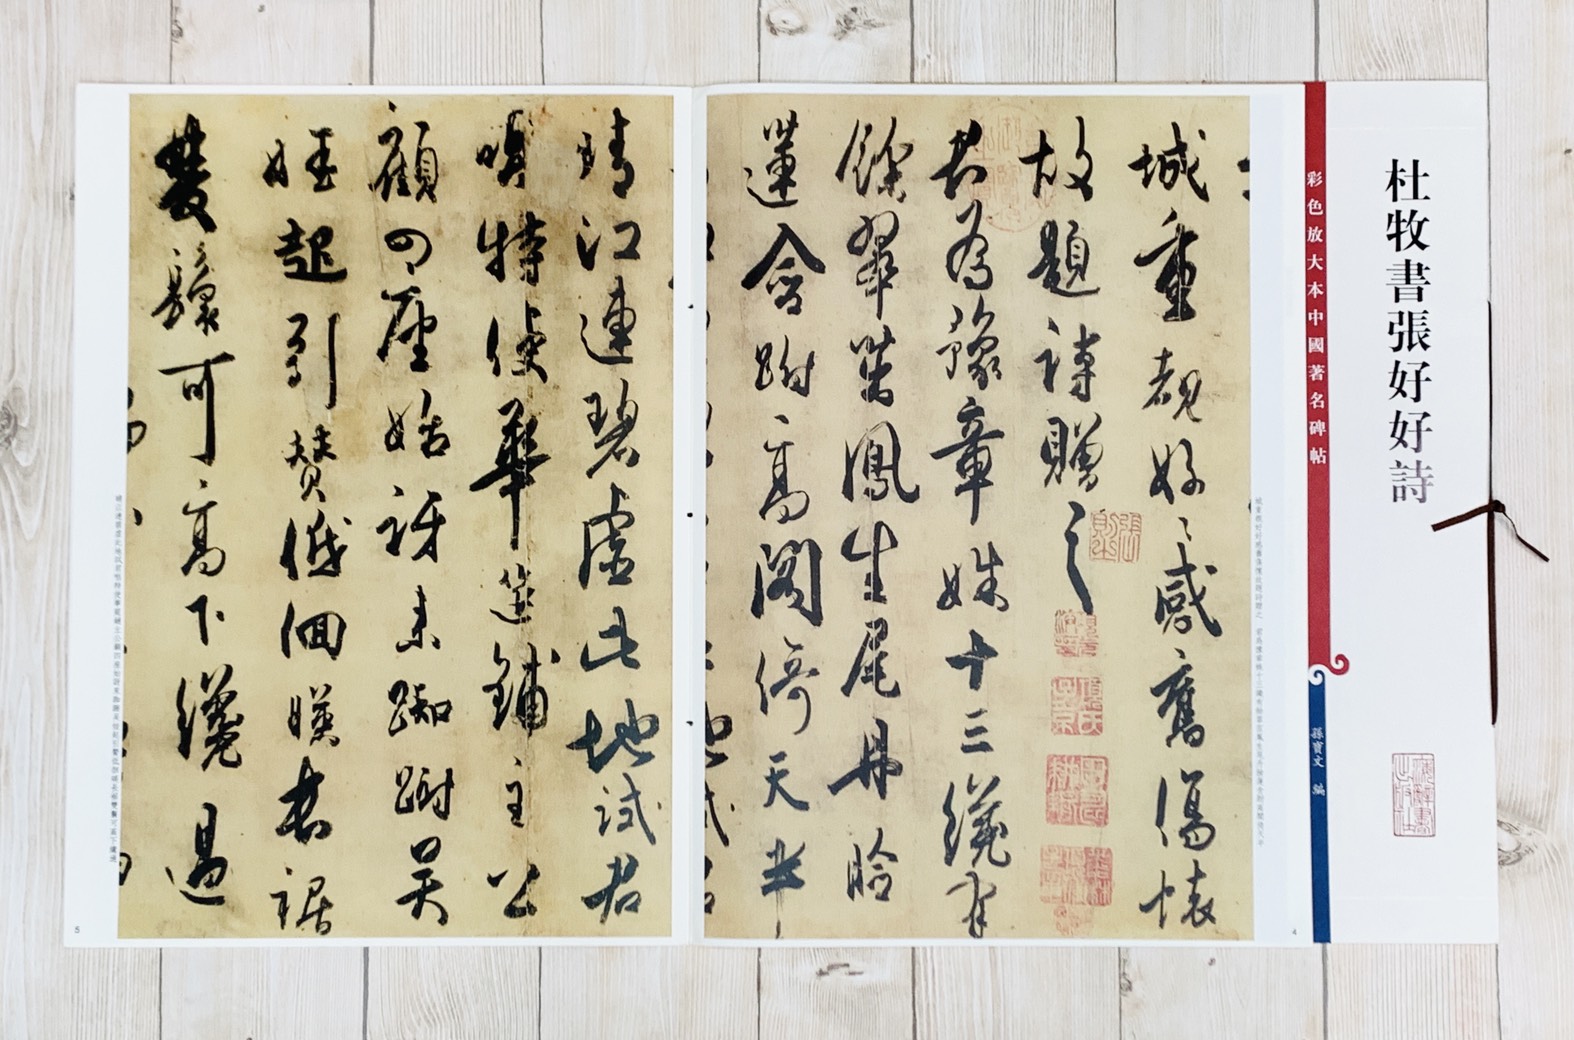 杜牧書張好好詩
彩色放大本中國著名碑帖
孫寶文 編
城重覩好〻感舊傷懷
故題詩贈之
君為豫章姝十三纔有
餘翠茁鳳生尾丹臉
蓮含跗高閣倚天半
4
晴江連碧虛此地試君
唱特使華筵鋪主公
顧四座始訝來踟躕吳
娃起引贊低佪暎長裾
雙鬟可高下纔過
5